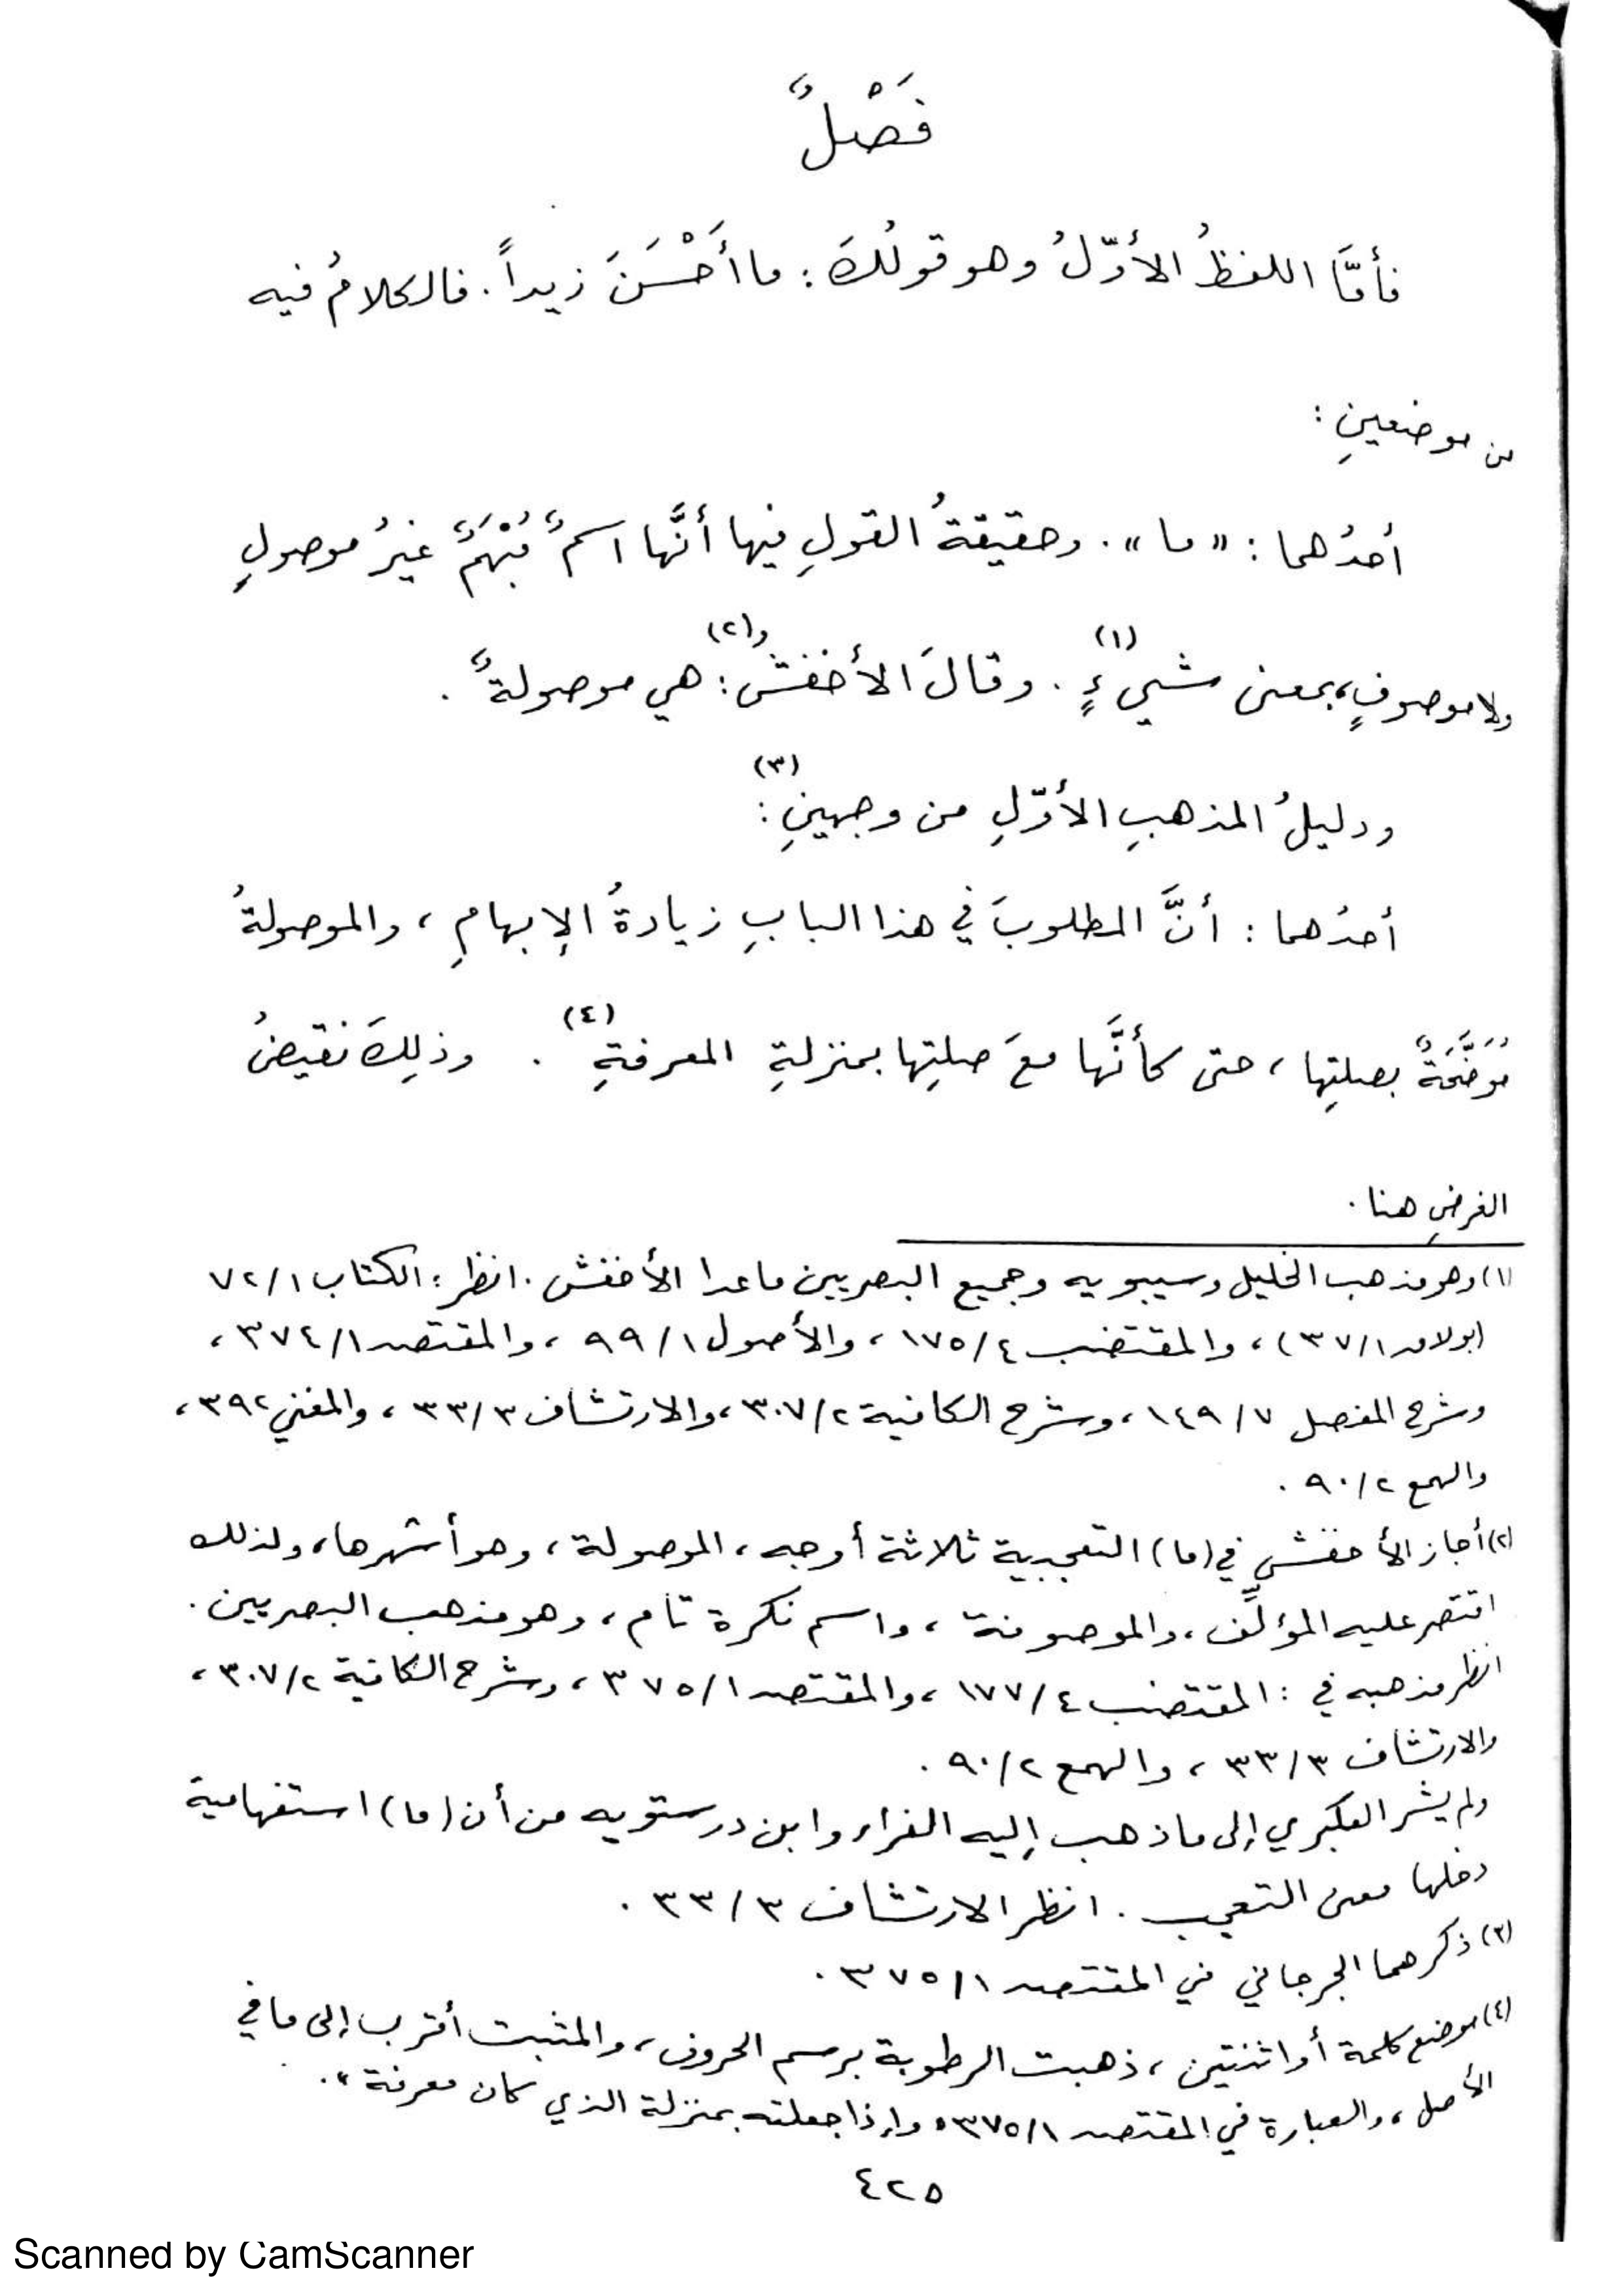 فَصْلٌ
فأمَّا اللفظُ الأوّلُ وهو قولُكَ : ما أَحْسَنَ زيداً . فالكلامُ فيه
من موضعينِ :
أحدُهما : «ما» . وحقيقةُ القولِ فيها أنَّها اسمٌ مُبْهَمٌ غيرُ موصولٍ
ولا موصوفٍ، بمعنى شيءٍ (١) . وقالَ الأخفشُ (٢) : هي موصولةٌ .
ودليلُ المذهبِ الأوّلِ من وجهينِ (٣) :
أحدُهما : أنَّ المطلوبَ في هذا البابِ زيادةُ الإبهامِ ، والموصولةُ
مُوَضَّحَةٌ بصلتِها ، حتى كأنَّها معَ صلتِها بمنزلةِ المعرفةِ (٤) . وذلِكَ نقيضُ
الغرضِ هنا .
(١) وهو مذهب الخليل وسيبويه وجميع البصريين ماعدا الأخفش . انظر : الكتاب ٧٢/١
(بولاق ٣٧/١) ، والمقتضب ١٧٥/٤ ، والأصول ٩٩/١ ، والمقتصد ٣٧٤/١ ،
وشرح المفصل ١٤٩/٧ ، وشرح الكافية ٣٠٧/٢ ، والارتشاف ٣٣/٣ ، والمغني ٣٩٢ ،
والهمع ٩٠/٢ .
(٢) أجاز الأخفش في (ما) التعجبية ثلاثة أوجه ، الموصولة ، وهو أشهرها ، ولذلك
اقتصر عليه المؤلِّف ، والموصوفة ، واسم نكرة تام ، وهو مذهب البصريين .
انظر مذهبه في : المقتضب ١٧٧/٤ ، والمقتصد ٣٧٥/١ ، وشرح الكافية ٣٠٧/٢ ،
والارتشاف ٣٣/٣ ، والهمع ٩٠/٢ .
ولم يشر العكبري إلى ما ذهب إليه الفراء وابن درستويه من أن (ما) استفهامية
دخلها معنى التعجب . انظر الارتشاف ٣٣/٣ .
(٣) ذكرهما الجرجاني في المقتصد ٣٧٥/١ .
(٤) موضع كلمة أو اثنتين ، ذهبت الرطوبة برسم الحروف ، والمثبت أقرب إلى ما في
الأصل ، والعبارة في المقتصد ٣٧٥/١ «وإذا جعلته بمنزلة الذي كان معرفة» .
٤٢٥
Scanned by CamScanner